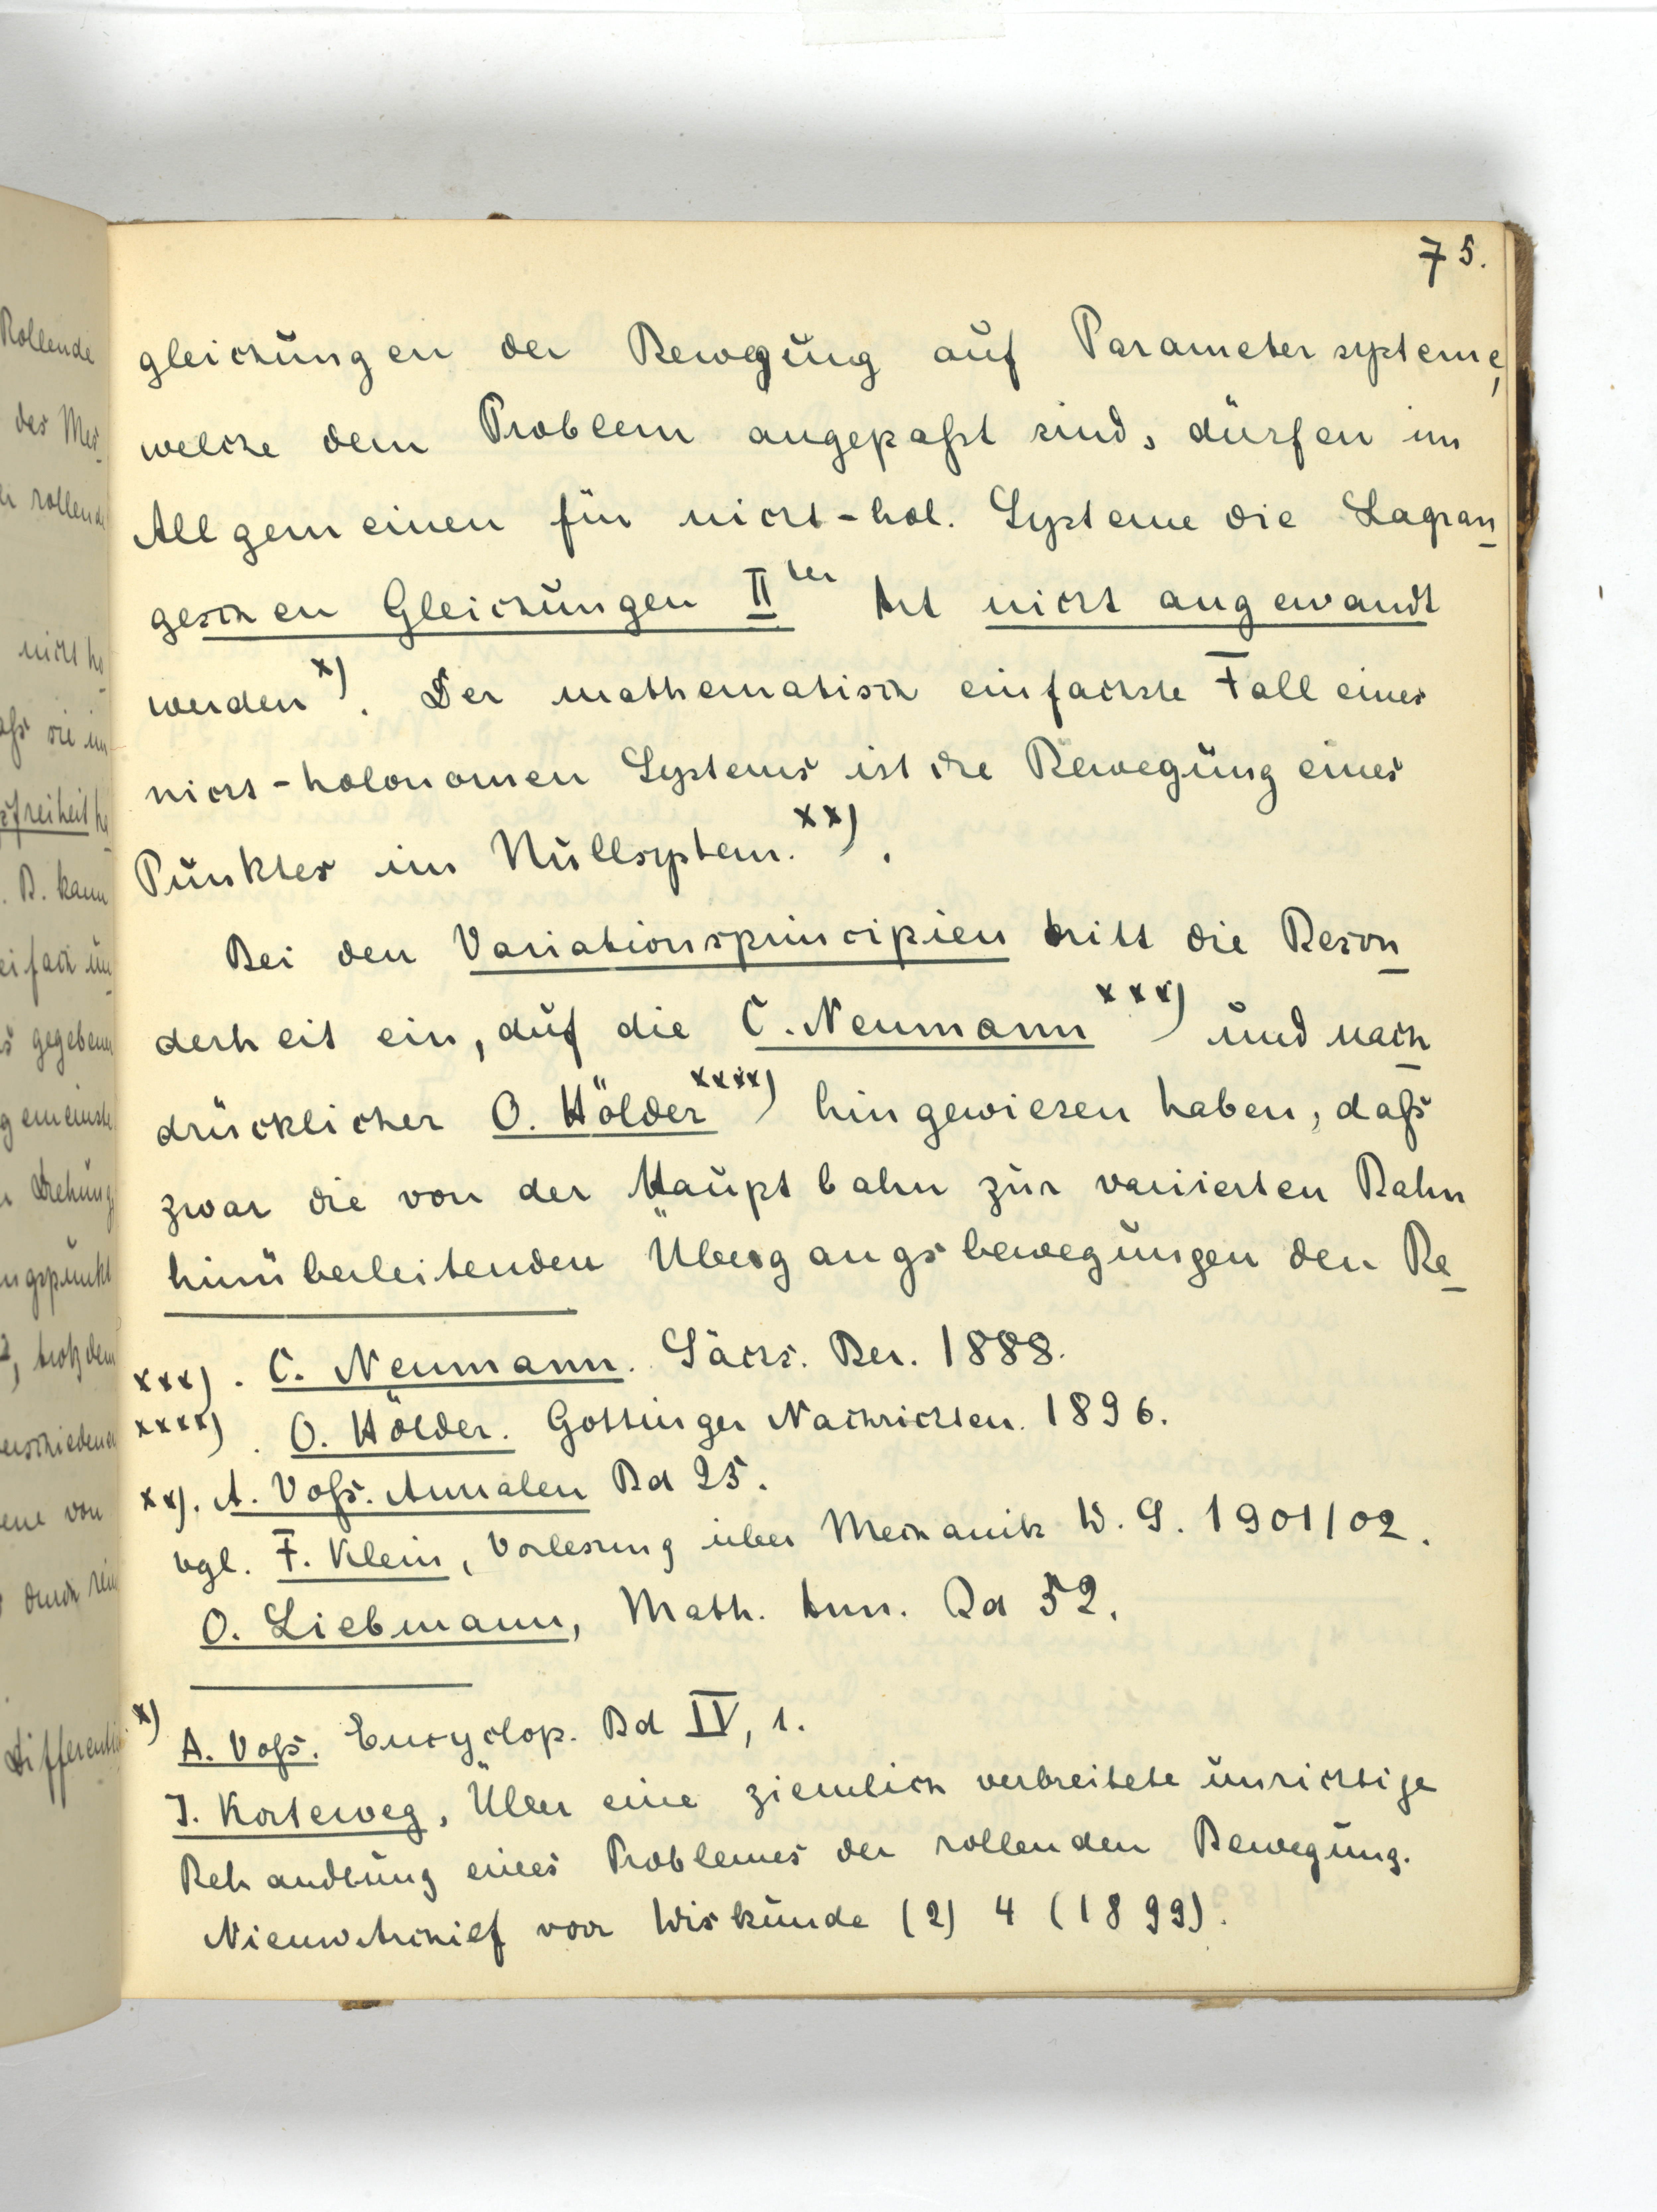 75.
gleichungen der Bewegung auf Parametersysteme,
welche dem Problem angepaßt sind, dürfen im
Allgemeinen für nicht-hol. Systeme die Lagran
geschen Gleichungen II ter Art nicht angewandt
werden x). Der mathematisch einfachste Fall eines
nicht-holonomen Systems ist die Bewegung eines
Punktes im Nullsystem. xx).
Bei den Variationsprincipien tritt die Beson
derheit ein, auf die C. Neumann xxx) und nach
drücklicher O. Hölder xxxx) hingewiesen haben, daß
zwar die von der Hauptbahn zur variierten Bahn
hinüberleitenden Übergangsbewegungen den Be
xxx). C. Neumann. Sächs. Ber. 1888.
xxxx). O. Hölder. Gottinger Nachrichten. 1896.
xx). A. Voß. Annalen Bd 25.
vgl. F. Klein, Vorlesung über Mechanik W. S. 1901/02.
O. Liebmann, Math. Ann. Bd 52.
x) A. Voß. Encyclop. Bd IV, 1.
J. Korteweg, Über eine ziemlich verbreitete unrichtige
Behandlung eines Problemes der rollenden Bewegung.
Nieuw Archief voor Wiskunde (2) 4 (1899).
Rollende
des Mes
rollend
nicht ho
aß sie im
freiheit he
B. kann
eifach un
s gegebenen
Drehung
ngspunkt
, trotzdem
erschiedene
ene von
durch rein
Differentia